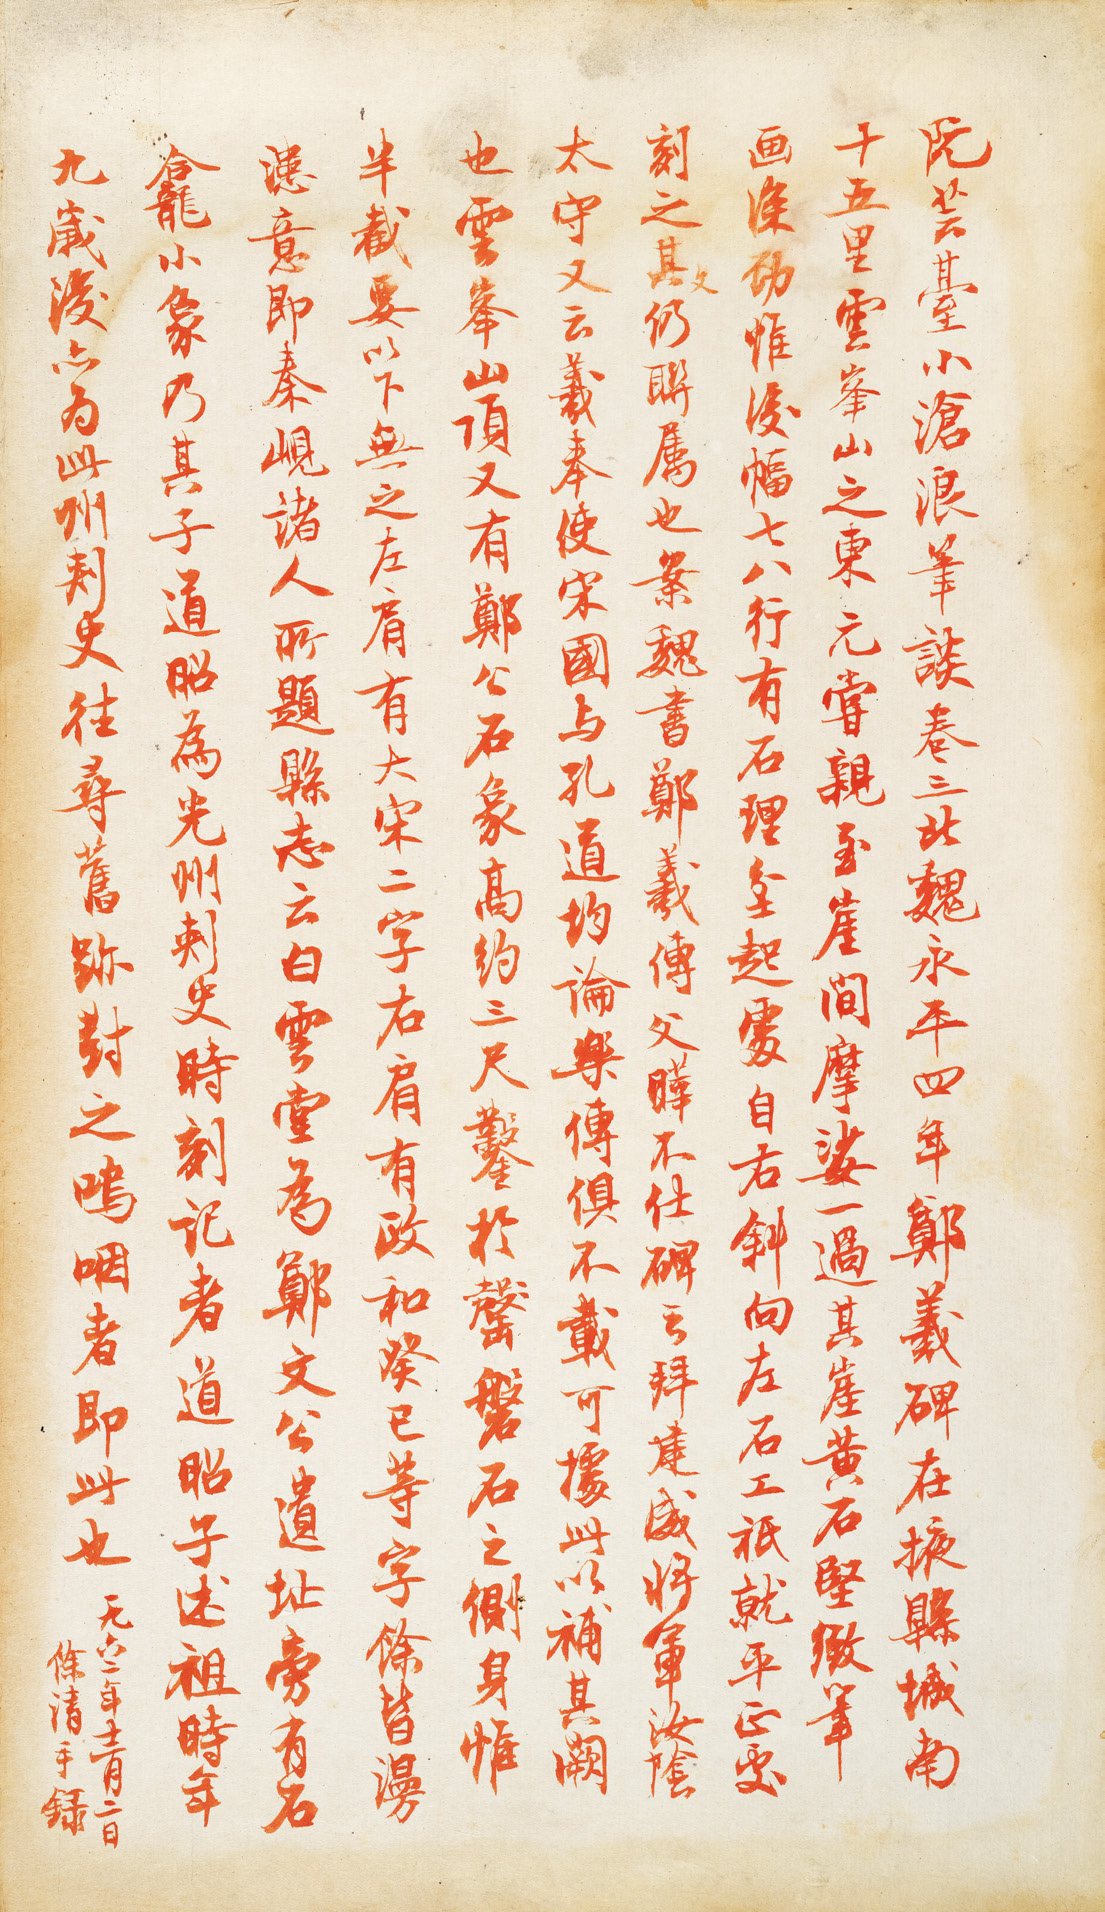 阮芸臺小滄浪筆談卷三北魏永平四年鄭羲碑在掖縣城南
十五里雲峯山之東元嘗親至崖間摩娑一過其崖黄石堅緻筆
画深劲惟後幅七八行有石理坌起處自右斜向左石工祇就平正處
刻之其文仍聯属也案魏書鄭羲傳父曄不仕碑云拜建威將軍汝陰
太守又云羲奉使宋國与孔道均論樂傳俱不載可據此以補其闕
也雲峯山頂又有鄭公石象高約三尺鑿於罄磐石之側身惟
半截要以下無之左肩有大宋二字右肩有政和癸巳等字餘皆漫
漶意即秦峴諸人所題縣志云白雲堂為鄭文公遺址旁有石
龕小象乃其子道昭為光州刺史時刻記者道昭子述祖時年
九歲後亦為此州刺史往尋舊跡對之嗚咽者即此也
一九六二年十二月二日
餘清手録